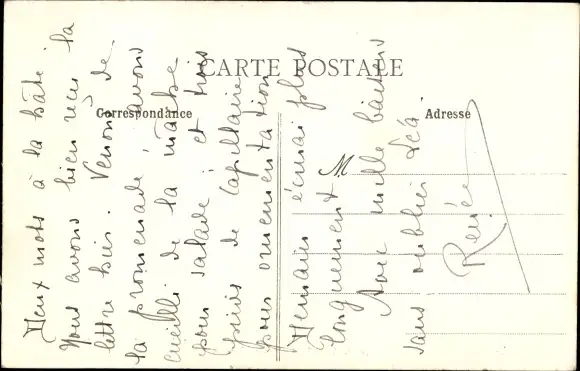 CARTE POSTALE
Correspondance
Adresse
M
Deux mots à la hâte !
Nous avons bien reçu ta
lettre hier. Venons de
la promenade, avons
cueilli de la mâche
pour salade, et trois
pieds de capillaire
pour ornementation
Demain écrirai plus
longuement
Avec mille baisers
sans oublier Léa
Renée